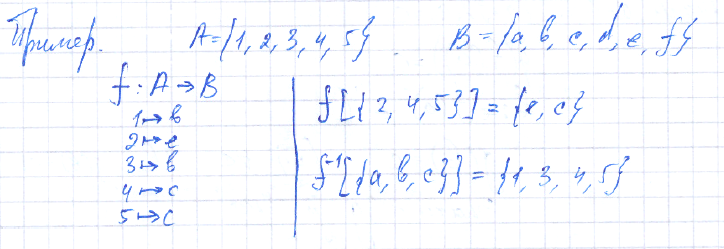 Пример. A={1, 2, 3, 4, 5}. B={a, b, c, d, e, f}
f : A → B
1 ↦ b
2 ↦ e
3 ↦ b
4 ↦ c
5 ↦ c
f[{2, 4, 5}] = {e, c}
f⁻¹[{a, b, c}] = {1, 3, 4, 5}